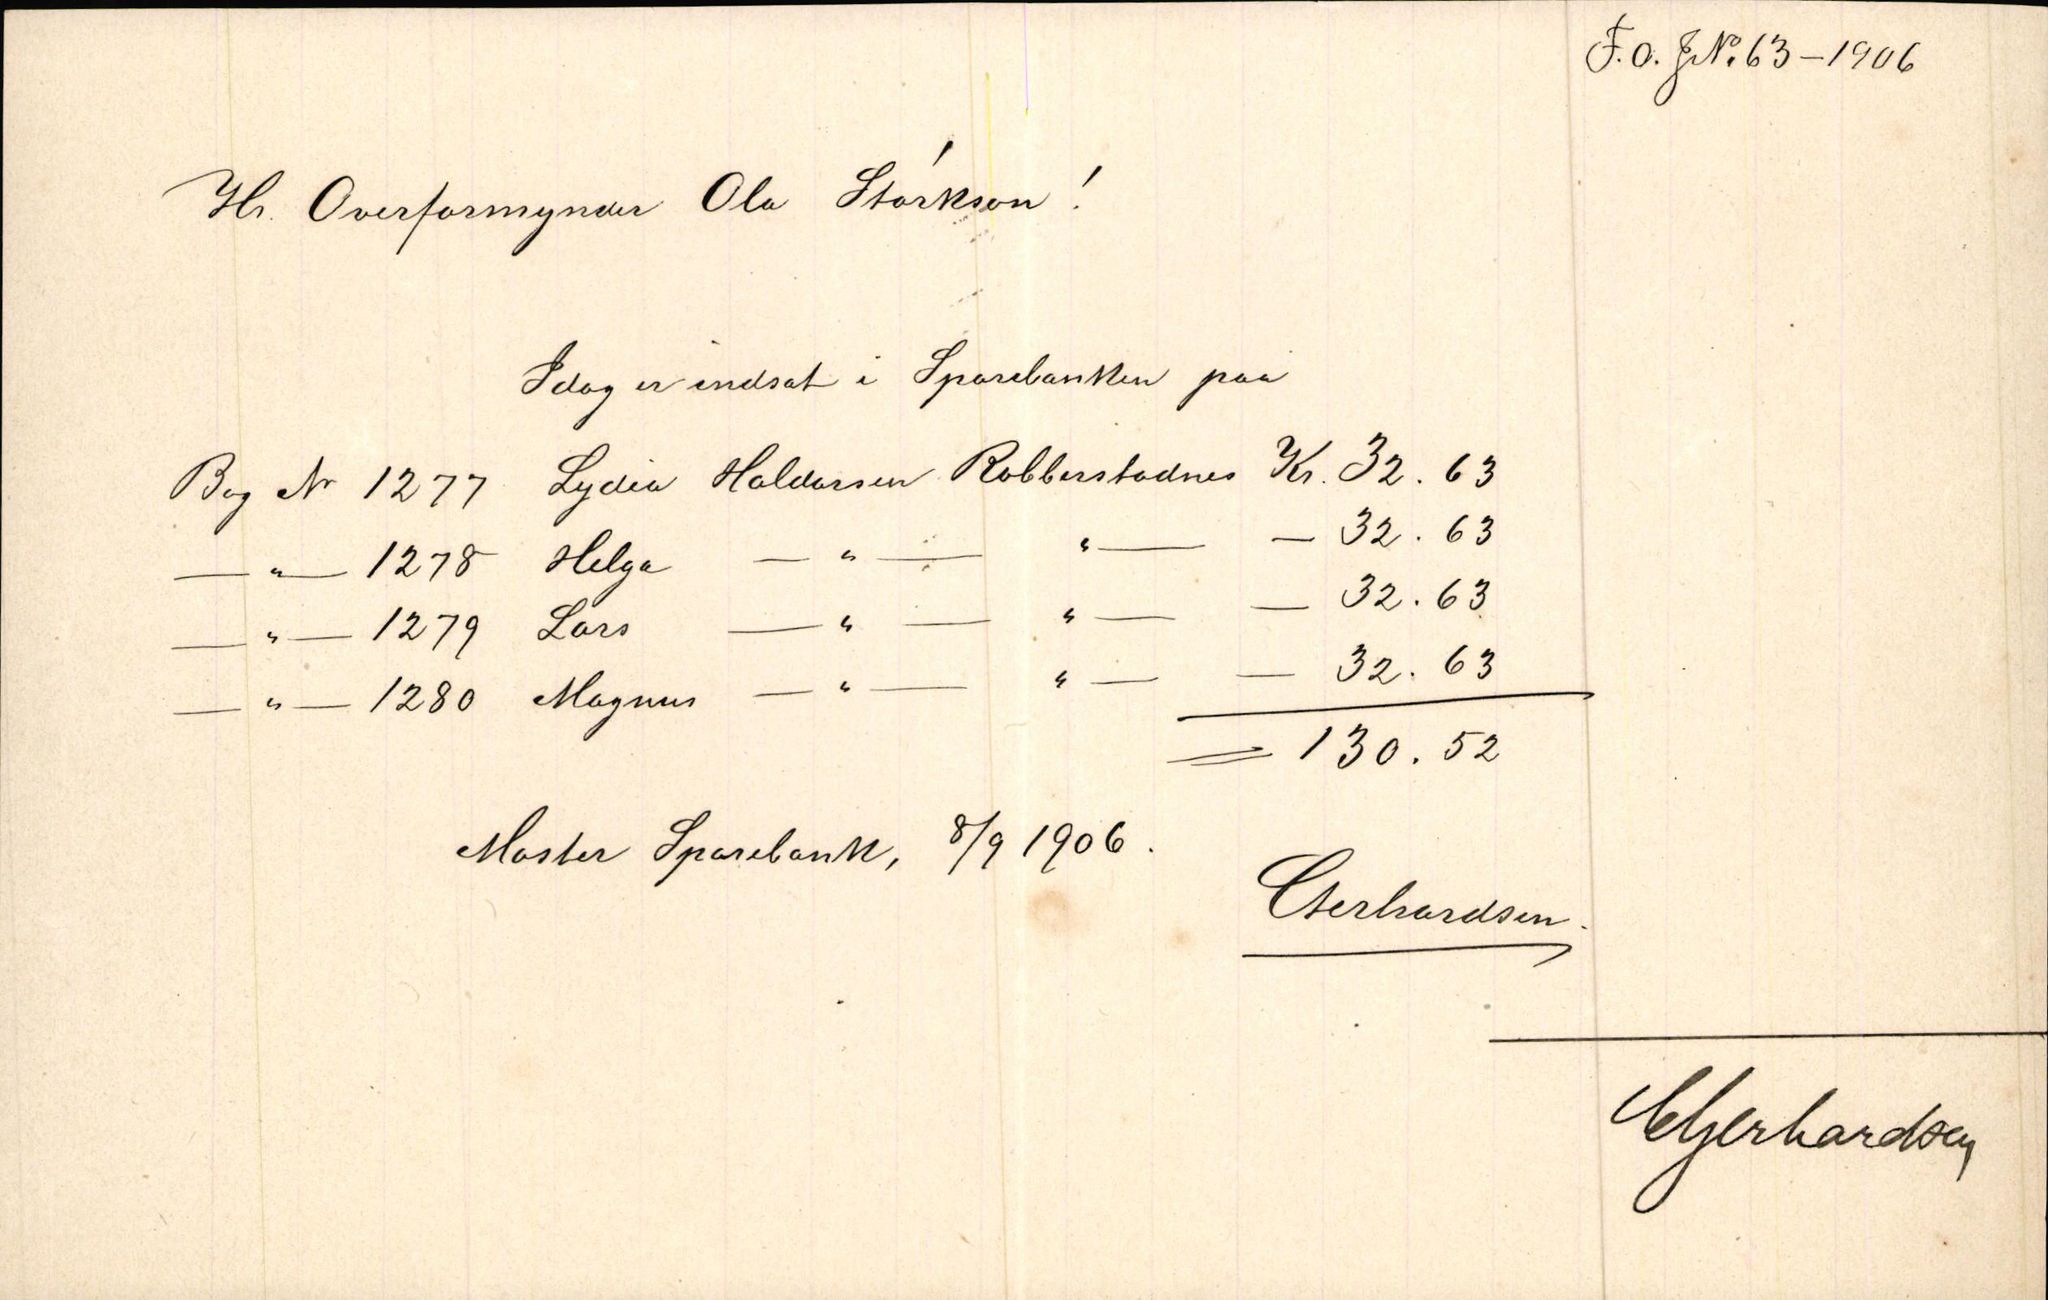 F. O. J№. 63 – 1906
Hr. Overformynder Ola Storkson!
Idag er indsat i Sparebanken paa
Bog Nr 1277 Lydia Haldorsen Robberstadnes Kr. 32. 63
— " — 1278 Helga — " — " — — 32. 63
— " — 1279 Lars — " — " — — 32. 63
— " — 1280 Magnus — " — " — — 32. 63
= 130. 52
Moster Sparebank, 8/9 1906.
Gerhardsen.
Gerhardsen